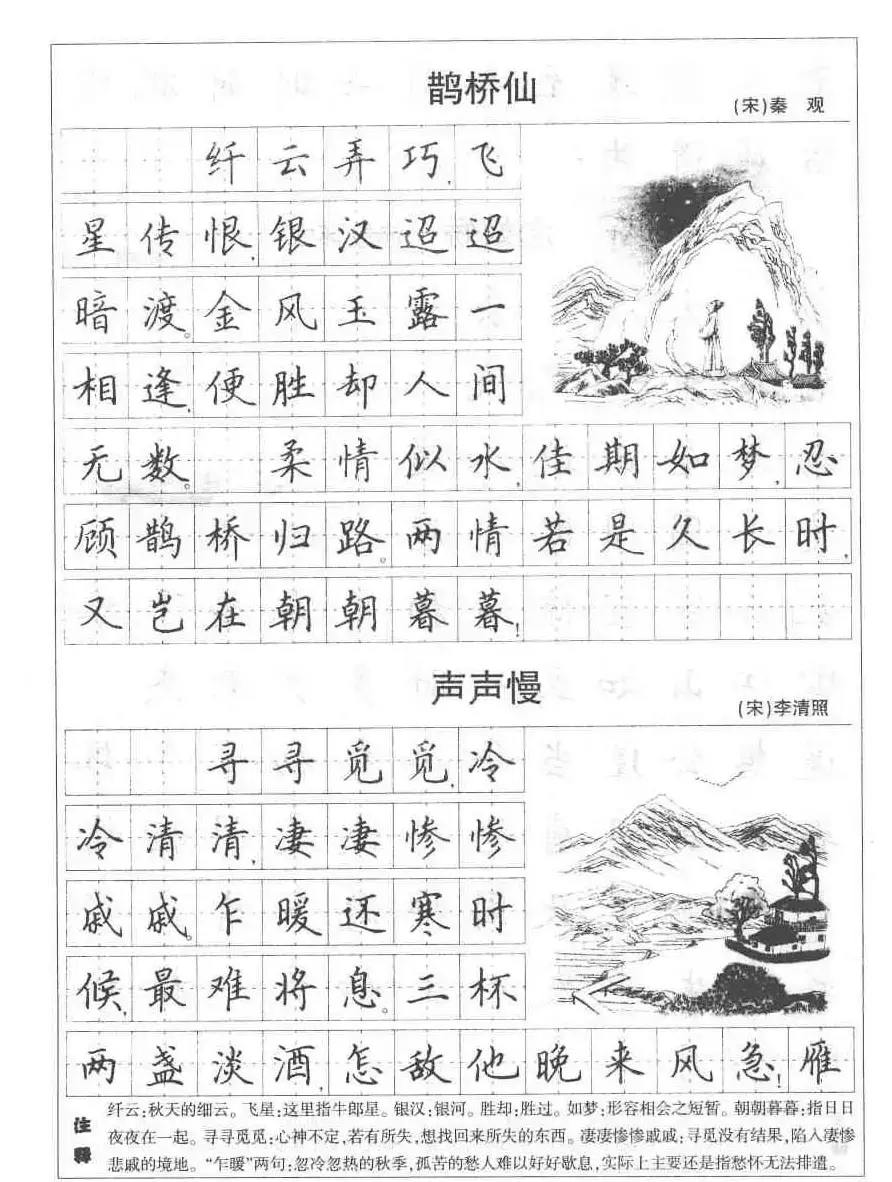 鹊桥仙
(宋)秦 观
纤云弄巧,飞
星传恨,银汉迢迢
暗渡。金风玉露一
相逢,便胜却人间
无数。 柔情似水,佳期如梦,忍
顾鹊桥归路。两情若是久长时,
又岂在朝朝暮暮!
声声慢
(宋)李清照
寻寻觅觅,冷
冷清清,凄凄惨惨
戚戚。乍暖还寒时
候,最难将息。三杯
两盏淡酒,怎敌他晚来风急!雁
注释
纤云:秋天的细云。飞星:这里指牛郎星。银汉:银河。胜却:胜过。如梦:形容相会之短暂。朝朝暮暮:指日日
夜夜在一起。寻寻觅觅:心神不定,若有所失,想找回来所失的东西。凄凄惨惨戚戚:寻觅没有结果,陷入凄惨
悲戚的境地。“乍暖”两句:忽冷忽热的秋季,孤苦的愁人难以好好歇息,实际上主要还是指愁怀无法排遣。